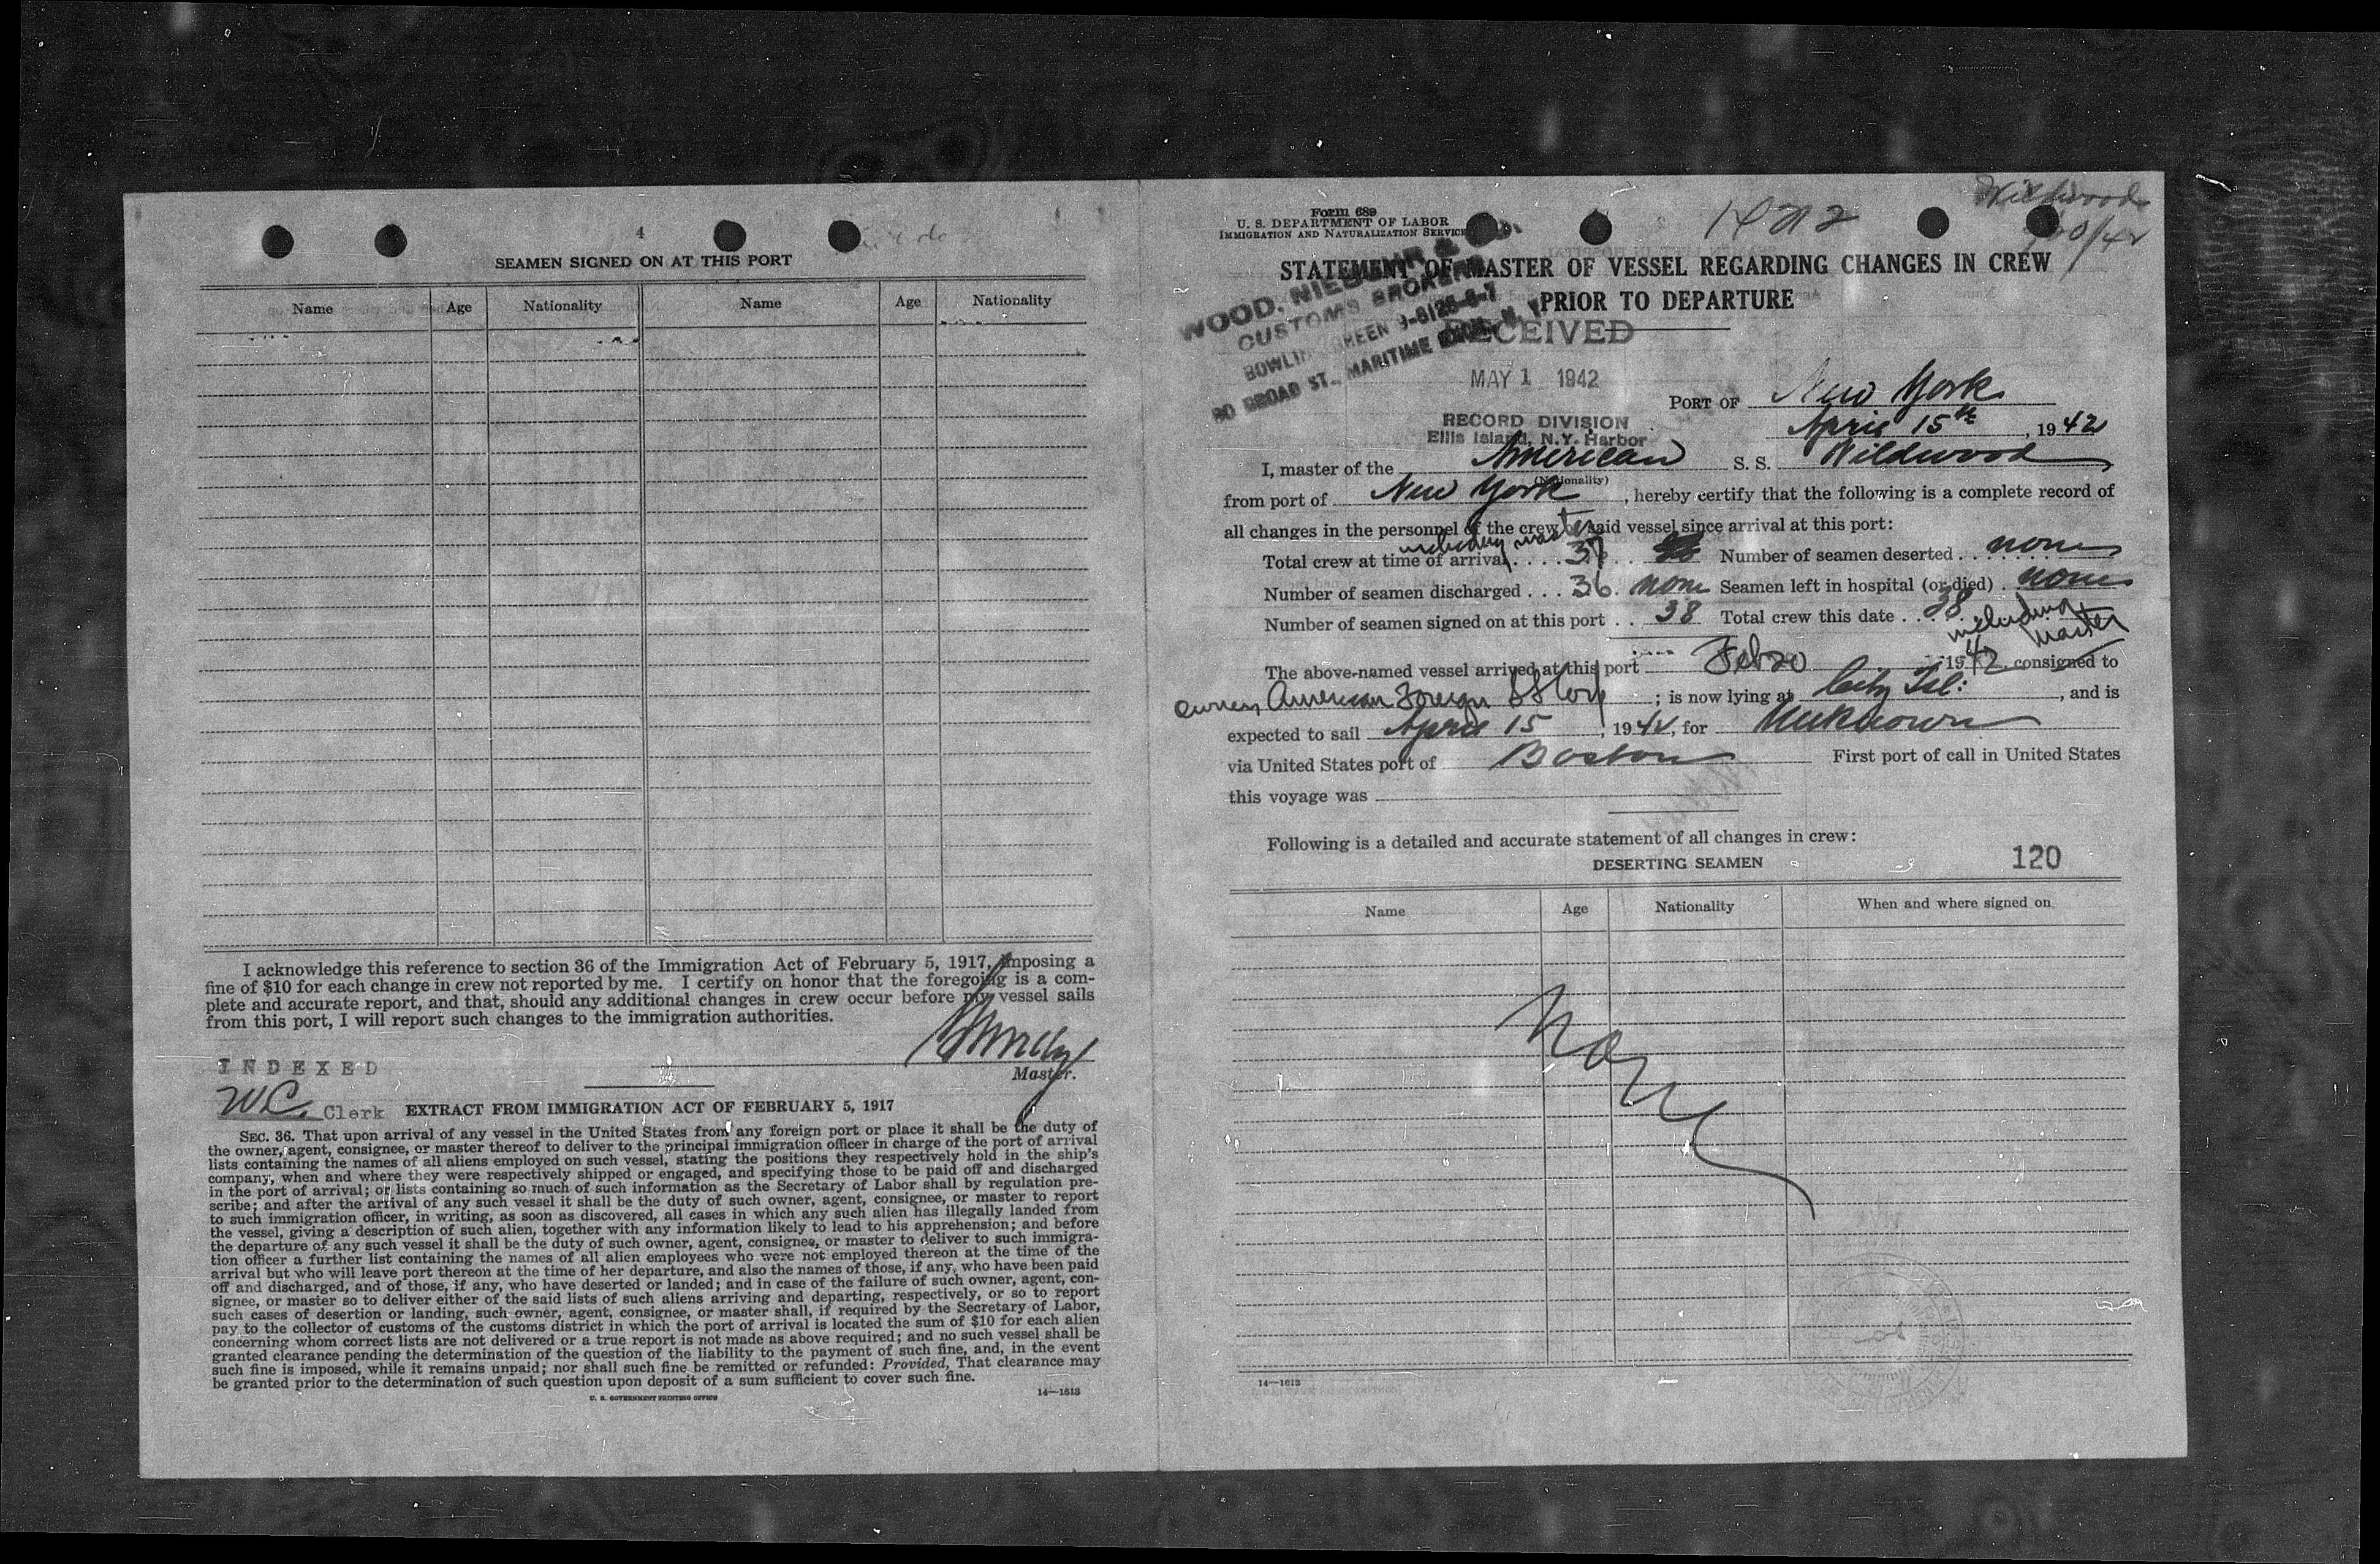 4
SEAMEN SIGNED ON AT THIS PORT
Name Age Nationality Name Age Nationality
I acknowledge this reference to section 36 of the Immigration Act of February 5, 1917, imposing a
fine of $10 for each change in crew not reported by me. I certify on honor that the foregoing is a com-
plete and accurate report, and that, should any additional changes in crew occur before my vessel sails
from this port, I will report such changes to the immigration authorities.
INDEXED
Master.
WC. Clerk
EXTRACT FROM IMMIGRATION ACT OF FEBRUARY 5, 1917
SEC. 36. That upon arrival of any vessel in the United States from any foreign port or place it shall be the duty of
the owner, agent, consignee, or master thereof to deliver to the principal immigration officer in charge of the port of arrival
lists containing the names of all aliens employed on such vessel, stating the positions they respectively hold in the ship's
company, when and where they were respectively shipped or engaged, and specifying those to be paid off and discharged
in the port of arrival; or lists containing so much of such information as the Secretary of Labor shall by regulation pre-
scribe; and after the arrival of any such vessel it shall be the duty of such owner, agent, consignee, or master to report
to such immigration officer, in writing, as soon as discovered, all cases in which any such alien has illegally landed from
the vessel, giving a description of such alien, together with any information likely to lead to his apprehension; and before
the departure of any such vessel it shall be the duty of such owner, agent, consignee, or master to deliver to such immigra-
tion officer a further list containing the names of all alien employees who were not employed thereon at the time of the
arrival but who will leave port thereon at the time of her departure, and also the names of those, if any, who have been paid
off and discharged, and of those, if any, who have deserted or landed; and in case of the failure of such owner, agent, con-
signee, or master so to deliver either of the said lists of such aliens arriving and departing, respectively, or so to report
such cases of desertion or landing, such owner, agent, consignee, or master shall, if required by the Secretary of Labor,
pay to the collector of customs of the customs district in which the port of arrival is located the sum of $10 for each alien
concerning whom correct lists are not delivered or a true report is not made as above required; and no such vessel shall be
granted clearance pending the determination of the question of the liability to the payment of such fine, and, in the event
such fine is imposed, while it remains unpaid; nor shall such fine be remitted or refunded: Provided, That clearance may
be granted prior to the determination of such question upon deposit of a sum sufficient to cover such fine.
U. S. GOVERNMENT PRINTING OFFICE 14—1613
Form 689
U. S. DEPARTMENT OF LABOR
IMMIGRATION AND NATURALIZATION SERVICE
Wildwood
STATEMENT OF MASTER OF VESSEL REGARDING CHANGES IN CREW
PRIOR TO DEPARTURE
WOOD, NIEBUHR & CO.
CUSTOMS BROKERS
BOWLING GREEN 9-8125-6-7
80 BROAD ST., MARITIME
RECEIVED
MAY 1 1942
RECORD DIVISION
Ellis Island, N.Y. Harbor
PORT OF New York
April 15th, 1942
I, master of the American S. S. Wildwood
(Nationality)
from port of New York, hereby certify that the following is a complete record of
all changes in the personnel of the crew of said vessel since arrival at this port:
including master
Total crew at time of arrival . . . . 37 Number of seamen deserted . . none
Number of seamen discharged . . . 36 none Seamen left in hospital (or died) . none
Number of seamen signed on at this port . . 38 Total crew this date . . 38 including master
The above-named vessel arrived at this port Feb 20 1942, consigned to
owners American Foreign SS Corp; is now lying at City Isl:, and is
expected to sail April 15, 1942, for Unknown
via United States port of Boston First port of call in United States
this voyage was
Following is a detailed and accurate statement of all changes in crew:
DESERTING SEAMEN
120
Name Age Nationality When and where signed on
None
14—1613